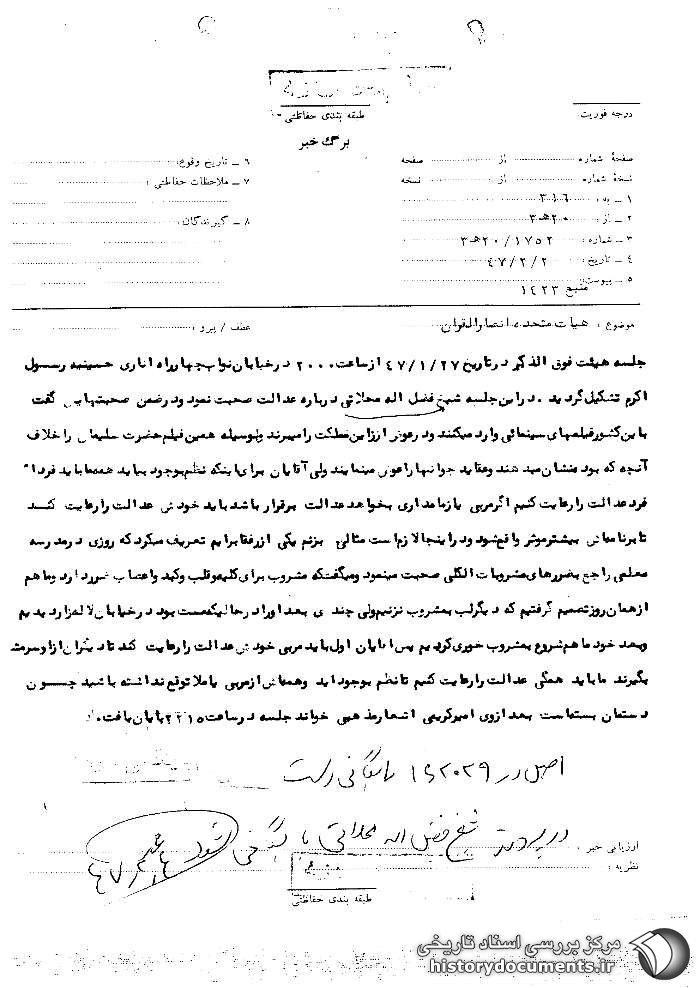 طبقه بندی حفاظتی
درجه فوریت
برگ خبر
صفحهٔ شماره از صفحه
نسخهٔ شماره از نسخه
۱ ـ به : ۳۱۶
۲ ـ از : ۲۰هـ۳
۳ ـ شماره : ۳هـ۲۰/۱۷۵۲
۴ ـ تاریخ : ۴۷/۲/۲
۵ ـ پیوست
منبع ۱۴۲۳
۶ ـ تاریخ وقوع :
۷ ـ ملاحظات حفاظتی :
۸ ـ گیرندگان :
موضوع : هیات متحده انصارالقران
عطف / پیرو :
جلسه هیئت فوق الذکر در تاریخ ۴۷/۱/۲۷ از ساعت ۲۰۰۰ در خیابان نواب چهارراه اناری حسینیه رسول
اکرم تشکیل گردید . در این جلسه شیخ فضل اله محلاتی درباره عدالت صحبت نمود و در ضمن صحبتهایش گفت
باین کشور فیلمهای سینمائی وارد میکنند و در عوض ارز این مملکت را میبرند و بوسیله همین فیلم حضرت سلیمان را خلاف
آنچه که بود نشان میدهند و عقاید جوانها را عوض مینمایند ولی آقایان برای اینکه نظم بوجود بیاید همه ما باید فرداً
فرد عدالت را رعایت کنیم اگر مربی یا زمامداری بخواهد عدالت برقرار باشد باید خودش عدالت را رعایت کند
تا برنامه‌اش بیشتر موثر واقع شود و در اینجا لازم است مثالی بزنم یکی از رفقا برایم تعریف میکرد که روزی در مدرسه
معلمی راجع بضررهای مشروبات الکلی صحبت مینمود و میگفت که مشروب برای کلیه و قلب و کبد و اعصاب ضرر دارد و ما هم
از همان روز تصمیم گرفتیم که دیگر لب بمشروب نزنیم ولی چندی بعد او را در حالیکه مست بود در خیابان لاله‌زار دیدیم
و بعد خود ما هم شروع بمشروب خوری کردیم پس آقایان اول باید مربی خودش عدالت را رعایت کند تا دیگران از او سرمشق
بگیرند ما باید همگی عدالت را رعایت کنیم تا نظم بوجود آید و همه‌اش از مربی یا ملا توقع نداشته باشید چون
دستمان بسته است بعد از وی امیر کریمی اشعار مذهبی خواند جلسه در ساعت ۲۲۱۵ پایان یافت .
اصل در ۱۶۲۰۲۹ بایگانی است
ارزیابی خبر :
نظریه :
در پرونده شیخ فضل اله محلاتی بایگانی شود
طبقه بندی حفاظتی
مرکز بررسی اسناد تاریخی
historydocuments.ir